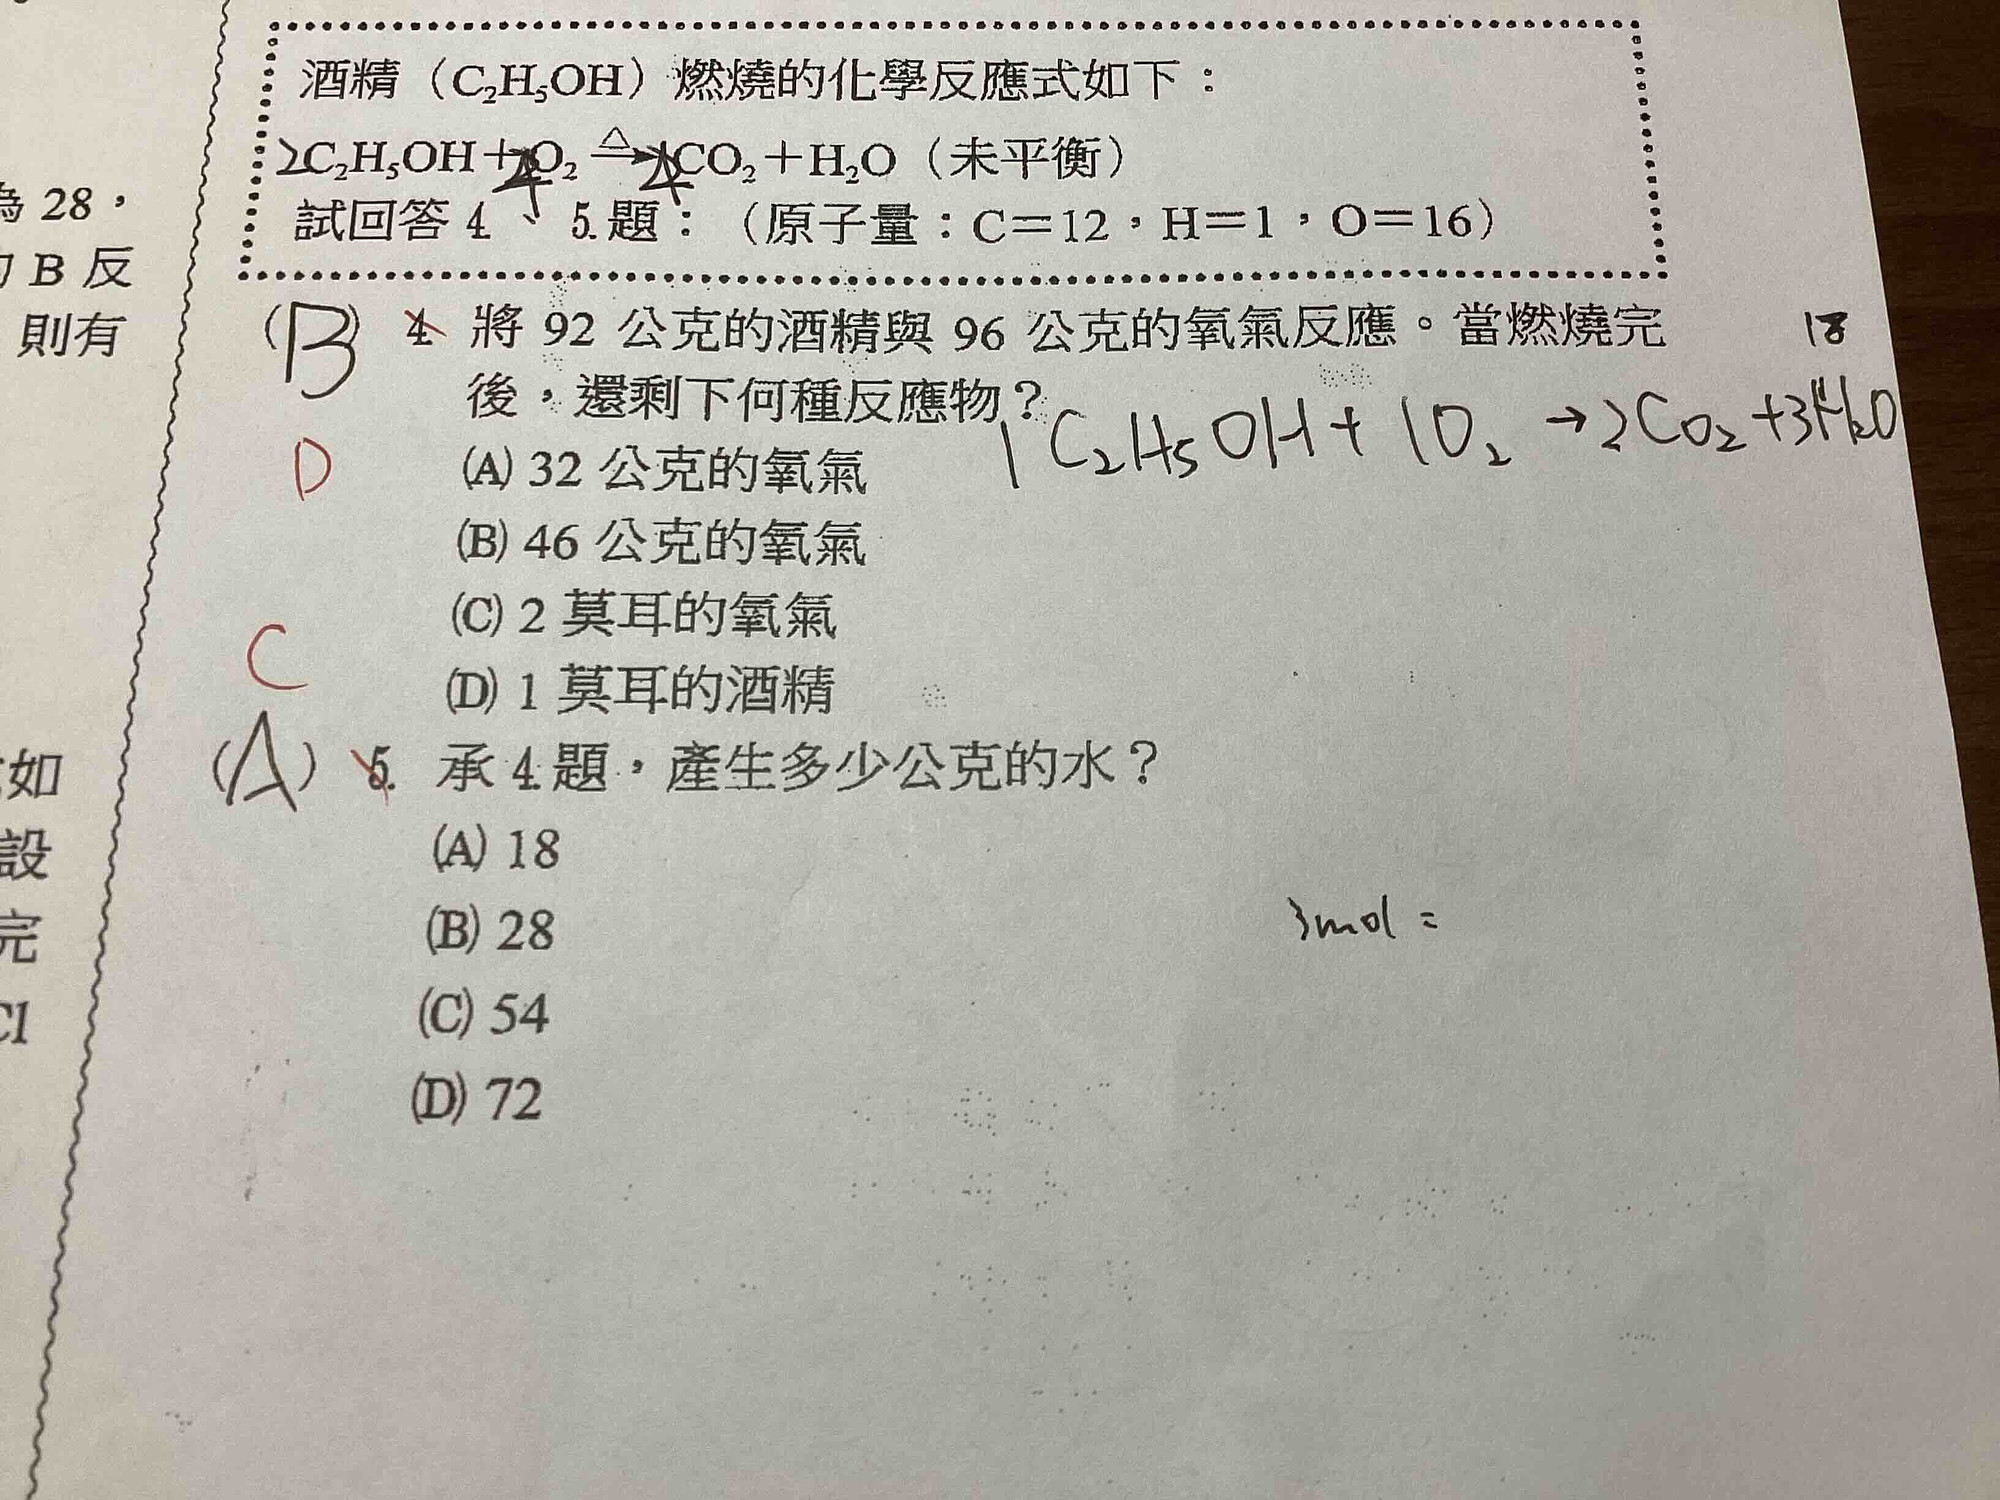 為 28，
的 B 反
則有
如
設
完
Cl
酒精（C₂H₅OH）燃燒的化學反應式如下：
2C₂H₅OH＋O₂ △→ CO₂＋H₂O（未平衡）
試回答 4.、5.題：（原子量：C＝12，H＝1，O＝16）
(B) 4. 將 92 公克的酒精與 96 公克的氧氣反應。當燃燒完
18
後，還剩下何種反應物？
1C₂H₅OH+1O₂→2CO₂+3H₂O
D
(A) 32 公克的氧氣
(B) 46 公克的氧氣
(C) 2 莫耳的氧氣
(D) 1 莫耳的酒精
C
(A) 5. 承 4.題，產生多少公克的水？
(A) 18
(B) 28
3mol =
(C) 54
(D) 72